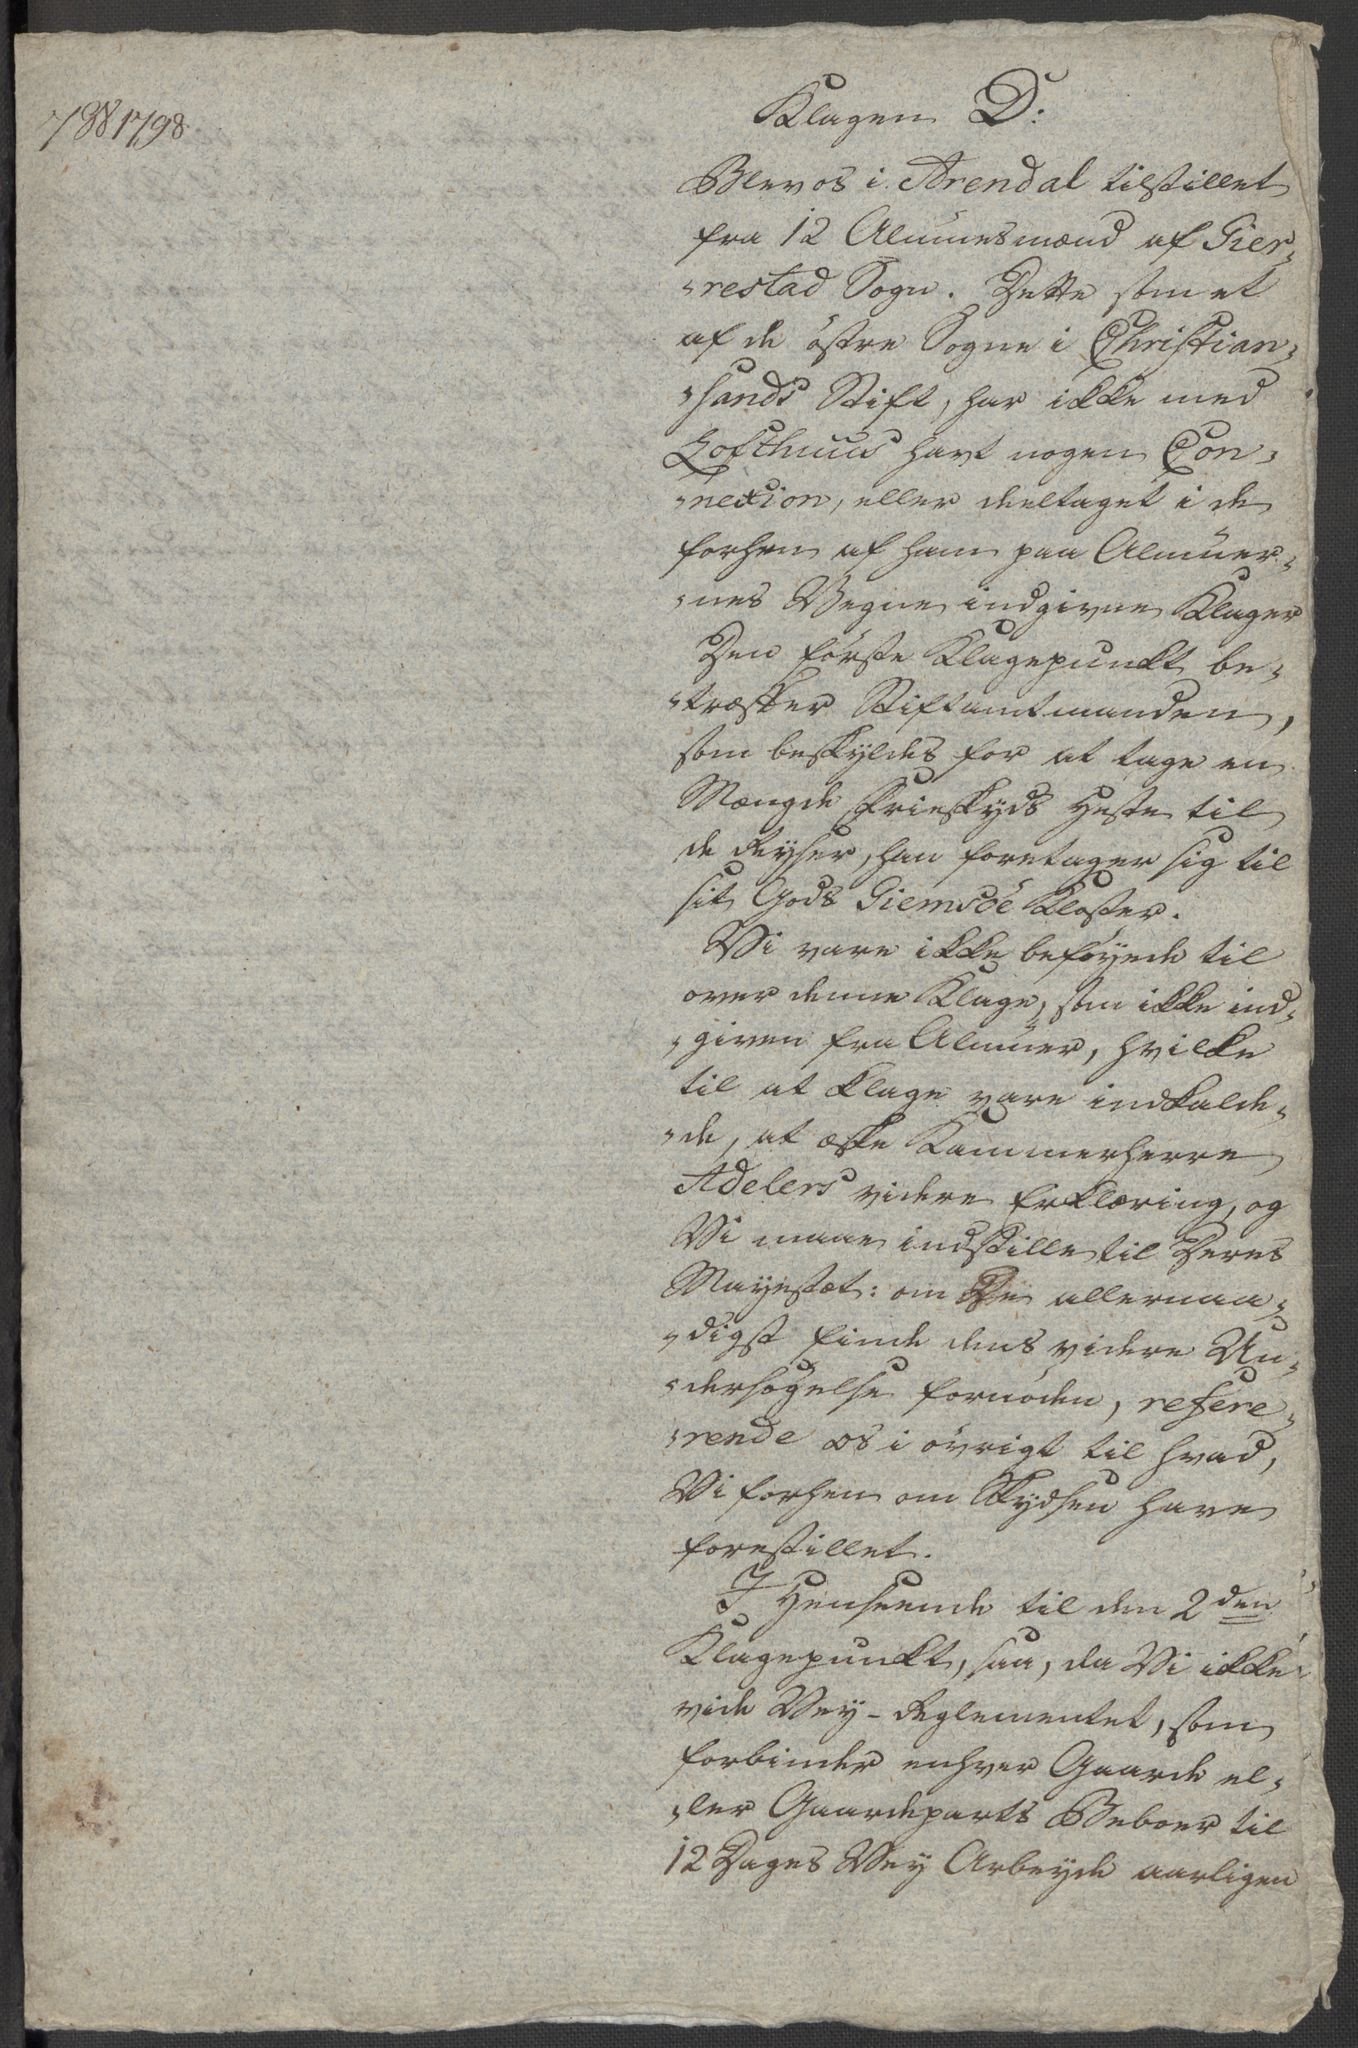 788 1798
Klagen D:
Blev os i Arendal tilstillet
fra 12 Almuesmænd af Gier-
-restad Sogn. Dette som et
af de østre Sogne i Christian-
-sands Stift, har ikke med
Lofthuus havt nogen Con-
-nexion, eller deeltaget i de
forhen af ham paa Almuer-
-nes Vegne indgivne Klager
Den første Klagepunkt be-
-træffer Stiftamtmanden,
som beskyldes for at tage en
Mængde Frieskyds Heste til
de Reyser, han foretager sig til
sit Gods Giemsöe Kloster.
Vi vare ikke beføyede til
over denne Klage, som ikke ind-
-given fra Almuer, hvilke
til at klage vare indkalde-
-de, at æske Kammerherre
Adelers videre Erklæring, og
Vi maae indstille til Deres
Mayestæt: om De allernaa-
-digst finde dens videre Un-
-dersøgelse fornøden, refere-
-rende os i øvrigt til hvad,
Vi forhen om Skydsen have
forestillet.
I Henseende til den 2den
Klagepunkt, saa, da Vi ikke
vide Vey-Reglementet, som
forbinder enhver Gaards el-
-ler Gaardeparts Beboer til
12 Dages Vey Arbeyde aarligen